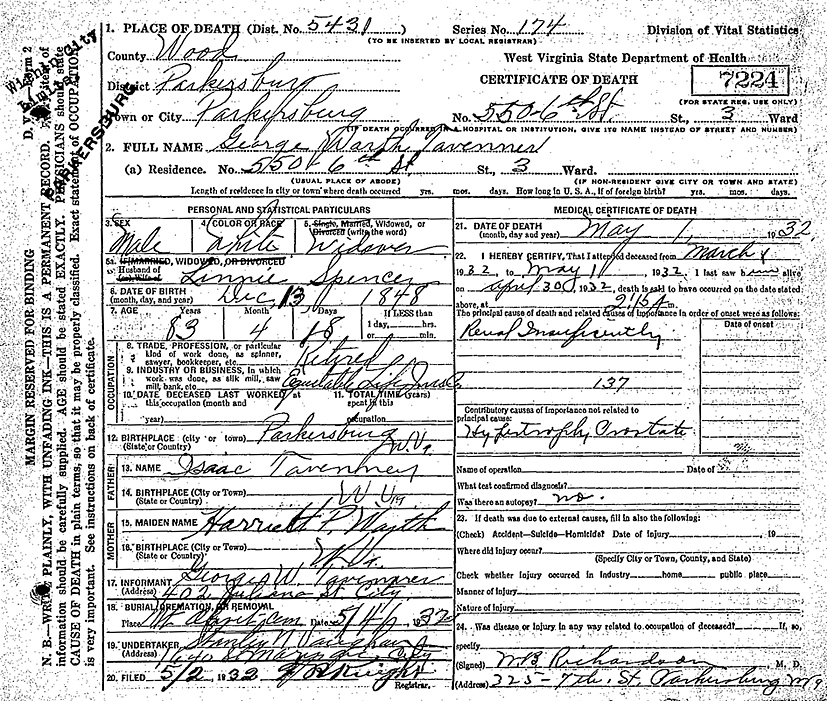 1. PLACE OF DEATH (Dist. No. 5431) Series No. 174 Division of Vital Statistics
(TO BE INSERTED BY LOCAL REGISTRAR)
County Wood West Virginia State Department of Health
District Parkersburg CERTIFICATE OF DEATH 7224
(FOR STATE REG. USE ONLY)
Town or City Parkersburg No. 550-6th St. St., 3 Ward
(IF DEATH OCCURRED IN A HOSPITAL OR INSTITUTION, GIVE ITS NAME INSTEAD OF STREET AND NUMBER)
2. FULL NAME George Warth Tavenner
(a) Residence. No. 550-6th St St., 3 Ward.
(USUAL PLACE OF ABODE) (IF NON-RESIDENT GIVE CITY OR TOWN AND STATE)
Length of residence in city or town where death occurred yrs. mos. days. How long in U. S. A., if of foreign birth? yrs. mos. days.
PERSONAL AND STATISTICAL PARTICULARS
3. SEX 4. COLOR OR RACE 5. Single, Married, Widowed, or Divorced (write the word)
Male White Widower
5a. IF MARRIED, WIDOWED, OR DIVORCED
Husband of
(or) Wife of Spencer
6. DATE OF BIRTH
(month, day, and year) Dec 13 1848
7. AGE Years Month Days If LESS than
1 day, hrs.
or min.
83 4 18
OCCUPATION
8. TRADE, PROFESSION, or particular
kind of work done, as spinner,
sawyer, bookkeeper, etc. Retired
9. INDUSTRY OR BUSINESS, in which
work was done, as silk mill, saw
mill, bank, etc. Equitable Life Ins Co.
10. DATE DECEASED LAST WORKED at 11. TOTAL TIME (years)
this occupation (month and spent in this
year) occupation
12. BIRTHPLACE (city or town) Parkersburg
(State or Country) W. Va.
FATHER
13. NAME Isaac Tavenner
14. BIRTHPLACE (City or Town)
(State or Country) W Va
MOTHER
15. MAIDEN NAME Harriett P. Warth
16. BIRTHPLACE (City or Town)
(State or Country) W. Va.
17. INFORMANT George W. Tavenner
(Address) 402 Juliana St. City
18. BURIAL, CREMATION, OR REMOVAL
Place Mt Olivet cem Date 5/4/1932
19. UNDERTAKER Stanley N. Vaughan
(Address) City
20. FILED 5/2, 1932 Knight
Registrar.
MEDICAL CERTIFICATE OF DEATH
21. DATE OF DEATH
(month, day and year) May 1, 1932
22. I HEREBY CERTIFY, That I attended deceased from March
1932, to May 1, 1932, I last saw him alive
on April 30, 1932, death is said to have occurred on the date stated
above, at m.
The principal cause of death and related causes of importance in order of onset were as follows:
Date of onset
Renal Insufficiently
137
Contributory causes of importance not related to
principal cause:
Hypertrophy Prostate
Name of operation Date of
What test confirmed diagnosis?
Was there an autopsy? no.
23. If death was due to external causes, fill in also the following:
(Check) Accident—Suicide—Homicide? Date of Injury , 19
Where did injury occur?
(Specify City or Town, County, and State)
Check whether injury occurred in industry home public place
Manner of injury
Nature of Injury
24. Was disease or injury in any way related to occupation of deceased? If, so,
specify
(Signed) W B Richardson M. D.
(Address) 325-7th. St. Parkersburg W Va
MARGIN RESERVED FOR BINDING
N. B.—WRITE PLAINLY, WITH UNFADING INK—THIS IS A PERMANENT RECORD. Every item of
information should be carefully supplied. AGE should be stated EXACTLY. PHYSICIANS should state
CAUSE OF DEATH in plain terms, so that it may be properly classified. Exact statement of OCCUPATION
is very important. See instructions on back of certificate.
PARKERSBURG